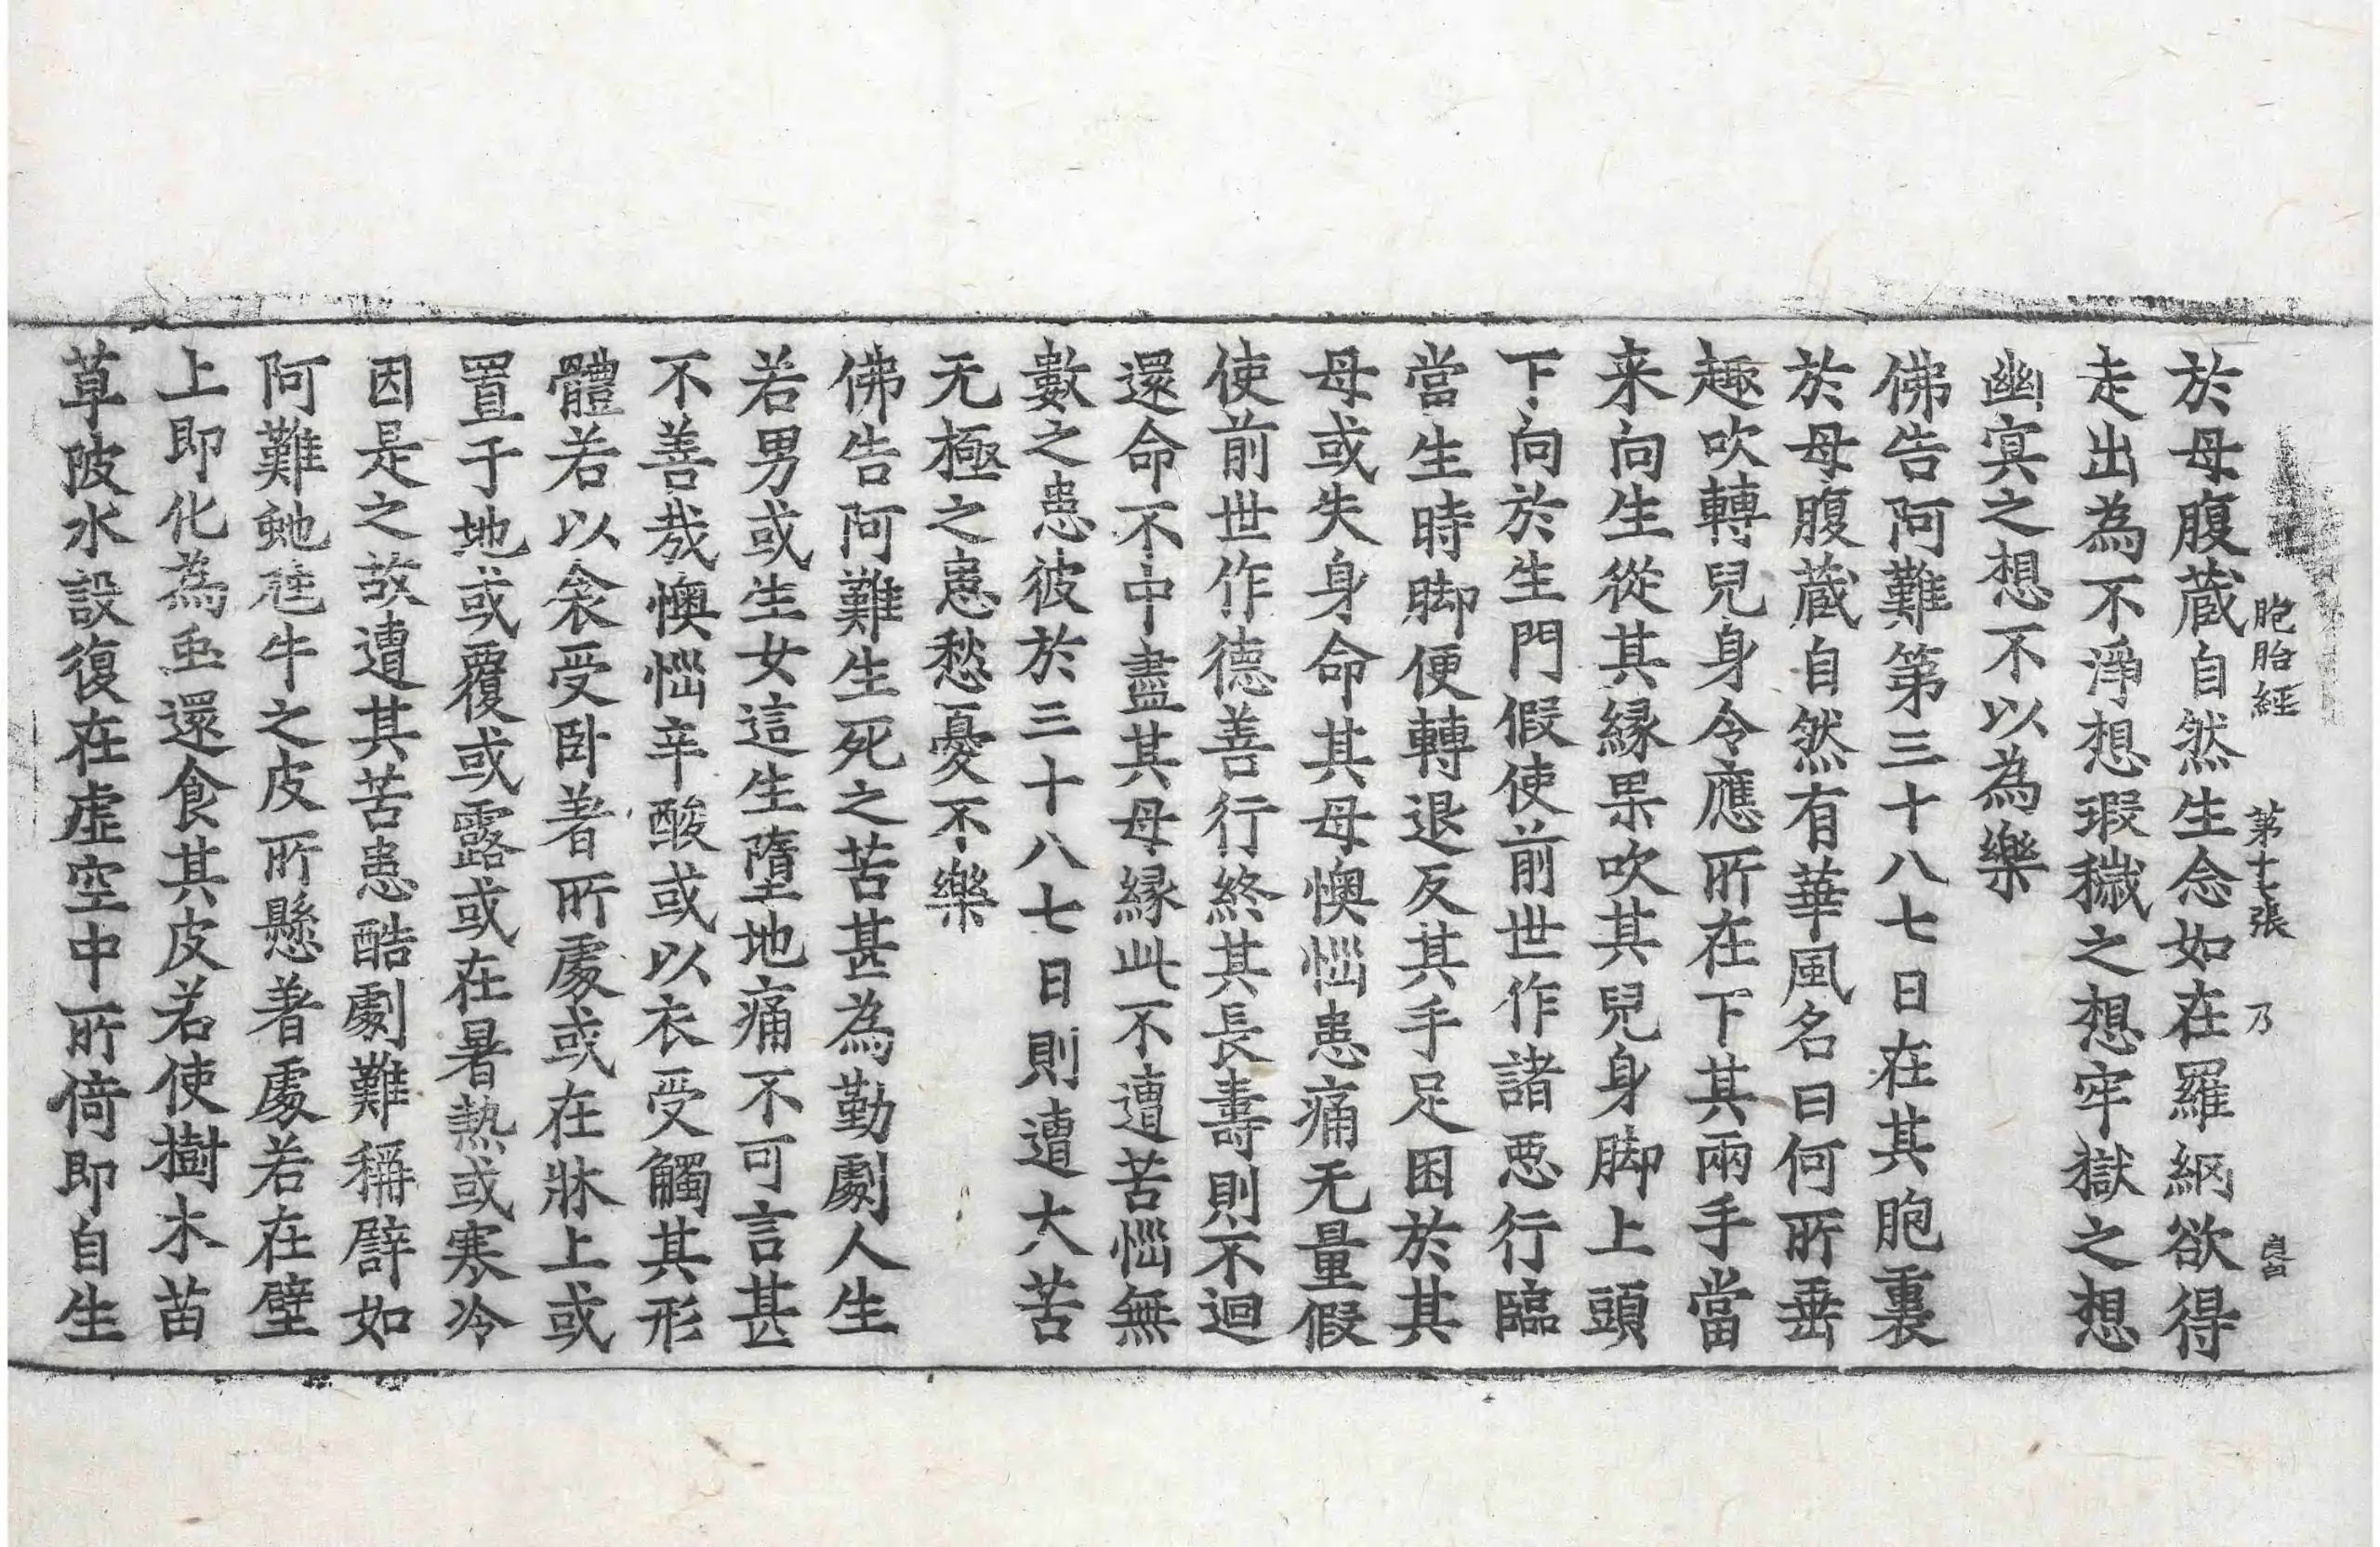 胞胎經 第十七張 乃
於母腹藏自然生念如在羅網欲得
走出為不淨想瑕穢之想牢獄之想
幽冥之想不以為樂
佛告阿難第三十八七日在其胞裏
於母腹藏自然有華風名曰何所垂
趣吹轉兒身令應所在下其兩手當
来向生從其縁果吹其兒身脚上頭
下向於生門假使前世作諸惡行臨
當生時脚便轉退反其手足困於其
母或失身命其母懊惱患痛无量假
使前世作德善行終其長壽則不迴
還命不中盡其母縁此不遭苦惱無
數之患彼於三十八七日則遭大苦
无極之患愁憂不樂
佛告阿難生死之苦甚為勤劇人生
若男或生女這生墮地痛不可言甚
不善哉懊惱辛酸或以衣受觸其形
體若以衾受卧著所處或在牀上或
置于地或覆或露或在暑熱或寒冷
因是之故遭其苦患酷劇難稱譬如
阿難虵虺牛之皮所懸著處若在壁
上即化為虫還食其皮若使樹木苗
草陂水設復在虛空中所倚即自生